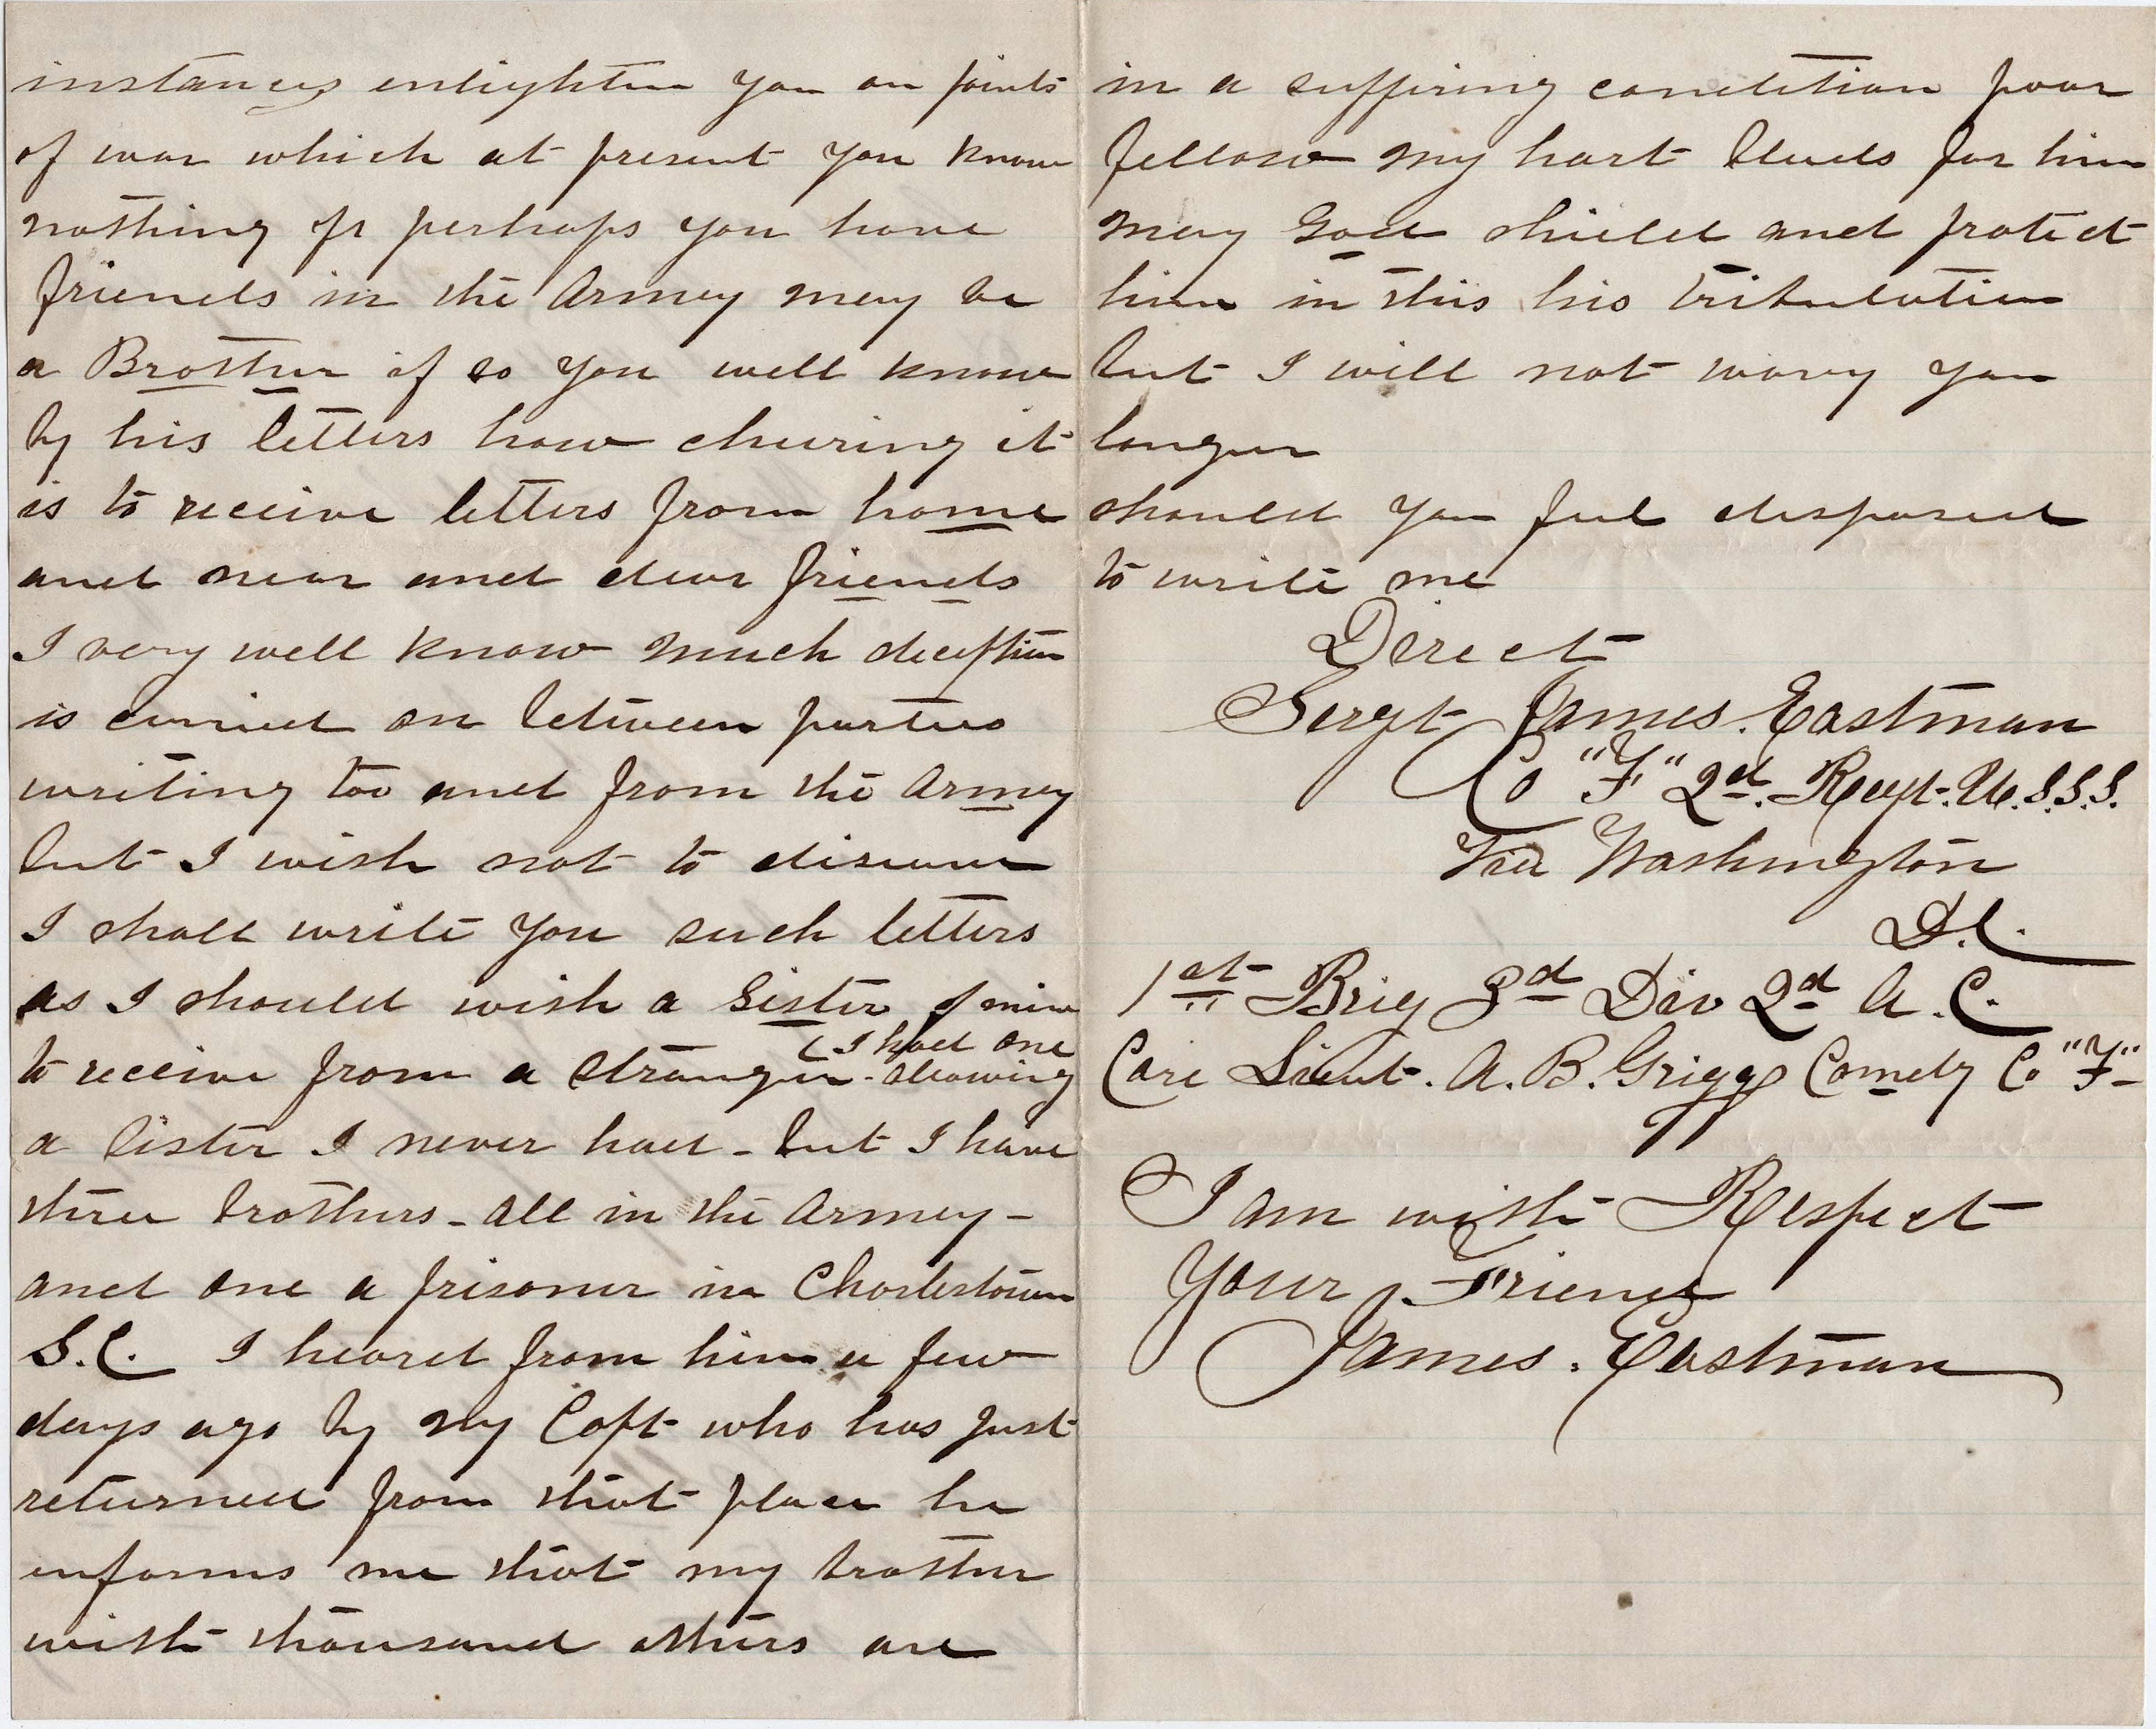 instances enlighten you on points
of war which at present you know
nothing of perhaps you have
friends in the Army may be
a Brother if so you well know
by his letters how cheering it
is to receive letters from home
and near and dear friends
I very well know much deception
is carried on between parties
writing too and from the Army
but I wish not to
I shall write you such letters
as I should wish a Sister of mine
(I had one
to receive from a stranger -
a Sister I never had - but I have
three brothers - all in the Army -
and one a prisoner in Charlestown
S.C. I heard from him a few
days ago by my Capt who has just
returned from that place he
informs me that my brother
with thousand others are
in a suffiring condition poor
fellow my hart bleeds for him
may God shield and protect
him in this his tribulation
but I will not worry you
longer
should you feel disposed
to write me
Direct
Sergt James. Eastman
Co "F" 2d. Regt. U.S.S.S.
Via Washington
D.C.
1st Brig 3d Div 2d A.C.
Care Lieut. A.B. Griggs Comdg Co "F"
I am with Respect
Your Friend
James. Eastman